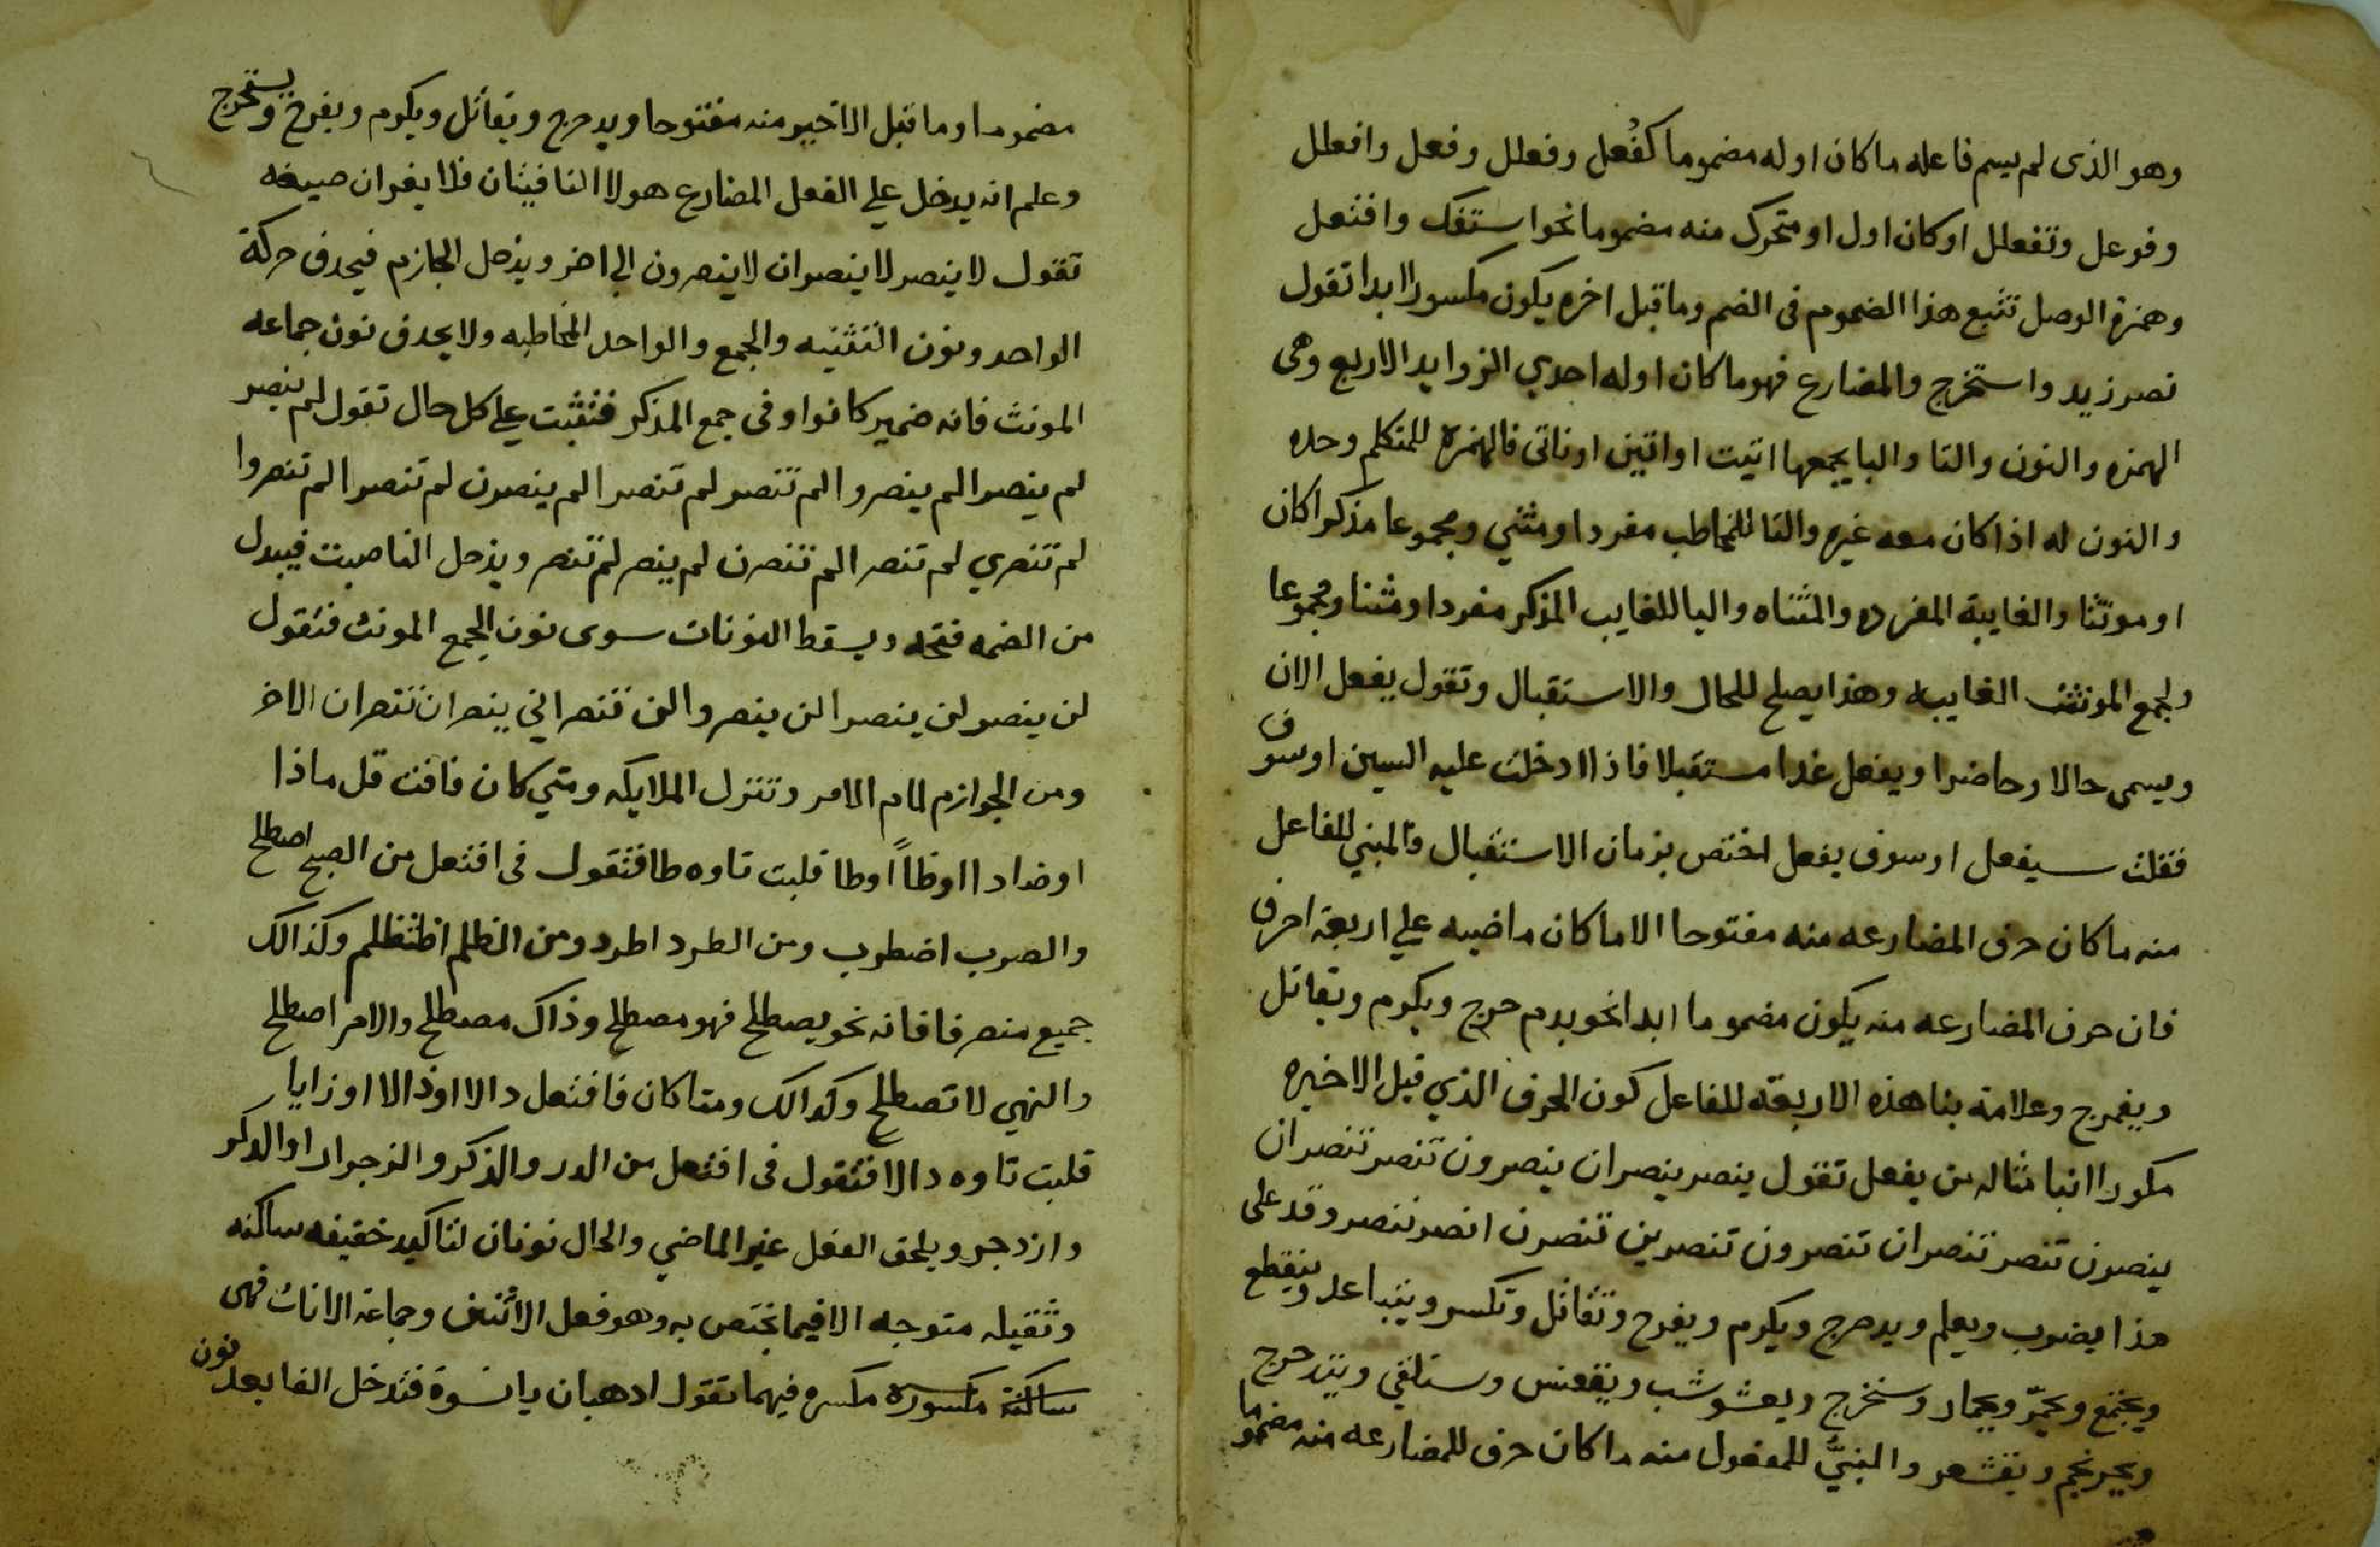 وهو الذى لم يسم فاعله ما كان اوله مضموما كفُعل وفعلل وفعل وافعلل
وفوعل وتفعلل اوكان اول او متحرك منه مضموما نحوا ستفك وافتعل
وهمزة الوصل تتبع هذا الضموم فى الضم وماقبل اخره يكون مكسورا ابدا تقول
نصر زيد واستخرج والمضارع فهو ما كان اوله احدي الزوايد الاربع وهى
الهمزه والنون والتا واليا يجمعها اتيت او اتين او ناتى فالهمزه للمتكلم وحده
والنون له اذا كان معه غيره والتا للمخاطب مفردا ومثني ومجموعا مذكرا كان
او مونثا والغايبة المفرده والمثناه واليا للغايب المذكر مفردا ومثنا ومجموعا
ولجمع المونث الغايبه وهذا يصلح للحال والاستقبال وتقول يفعل الان
ويسمى حالا وحاضرا ويفعل غدا مستقبلا فاذا ادخلت عليه السين اوسوف
فقلت سيفعل اوسوف يفعل اختص بزمان الاستقبال والمبني للفاعل
منه ما كان حرف المضارعه منه مفتوحا الا ما كان ماضيه علي اربعة احرف
فان حرف المضارعه منه يكون مضموما ابدا نحو يدم حرج ويكرم ويقاتل
ويفرج وعلامة بنا هذه الاربعة للفاعل كون الحرف الذي قبل الاخيره
مكورا انبا مثاله من يفعل تقول ينصر ينصران ينصرون تنصر تنصران
ينصرن تنصر تنصران تنصرون تنصرين تنصرن انصر ننصر وقد على
هذا يضرب ويعلم ويدحرج ويكرم ويفرح وتقاتل وتكسر ويتباعد وينقطع
ويجتمع ويحمرّ ويحمار وستخرج ويعشوشب ويقعنس وستلقي ويتدحرج
ويحرنجم ويقشعر والمبنيّ للمفعول منه ما كان حرف للمضارعه منه مضموما
مضموما وما قبل الاخير منه مفتوحا ويدحرج ويقاتل ويكرم ويفرح ويستخرج
وعلم انه يدخل علي الفعل المضارع هولا النافيتان فلا يغيران صيغه
تقول لا ينصر لا ينصران لا ينصرون الي اخر ويدخل الجازم فيحدف حركة
الواحد ونون التثنيه والجمع والواحد المخاطبه ولا يحدف نون جماعه
المونث فانه ضمير كانوا وفى جمع المذكر فتثبت علي كل حال تقول لم ينصر
لم ينصرا لم ينصروا لم تنصر لم تنصرا لم ينصرن لم تنصرا لم تنصروا
لم تنصري لم تنصرا لم تنصرن لم ينصر لم تنصر ويدخل الناصبت فيبدل
من الضمه فتحه ويسقط النونات سوى نون الجمع المونث فتقول
لن ينصر لن ينصرا لن ينصروا لن تنصر اني ينصران تنصران الاخر
ومن الجوازم لام الامر وتنزل الملايكه ومتي كان فافت قل ماذا
اوضادا اوظاً اوطا قلبت تاوه طا فتقول فى افتعل من الصبح اصطلح
والصرب اضطرب ومن الطرد اطرد ومن الظلم اظتظلم وكذالك
جميع منصرفافانه نحو يصطلح فهو مصطلح وذاك مصطلح والامر اصطلح
والنهي لا تصطلح وكدالك ومتا كان فافتعل دالا اوذالا اوزايا
قلبت تاوه دالا فتقول فى افتعل من الدر والذكر والزجر ادرا والدكر
وازدجر ويلحق الفعل غير الماضي والحال نونان لتاكيد خفيفه ساكنه
وثقيله متوجه الا فيما تختص به وهو فعل الاثنين وجماعة الاناث فهى
ساكنة مكسوره مكسره فيهما تقول ادهبان يا نسوة فتدخل الفا بعد نون